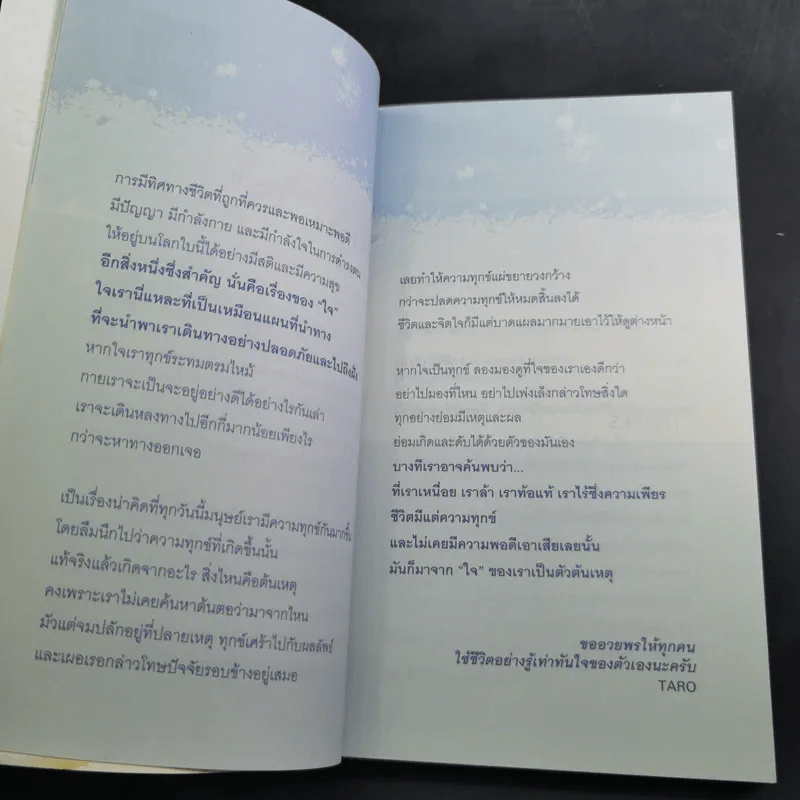 การมีทิศทางชีวิตที่ถูกที่ควรและพอเหมาะพอดี
มีปัญญา มีกำลังกาย และมีกำลังใจในการดำรงตน
ให้อยู่บนโลกใบนี้ได้อย่างมีสติและมีความสุข
อีกสิ่งหนึ่งซึ่งสำคัญ นั่นคือเรื่องของ “ใจ”
ใจเรานี่แหละที่เป็นเหมือนแผนที่นำทาง
ที่จะนำพาเราเดินทางอย่างปลอดภัยและไปถึงฝั่ง
หากใจเราทุกข์ระทมตรมไหม้
กายเราจะเป็นจะอยู่อย่างดีได้อย่างไรกันเล่า
เราจะเดินหลงทางไปอีกกี่มากน้อยเพียงไร
กว่าจะหาทางออกเจอ
เป็นเรื่องน่าคิดที่ทุกวันนี้มนุษย์เรามีความทุกข์กันมากขึ้น
โดยลืมนึกไปว่าความทุกข์ที่เกิดขึ้นนั้น
แท้จริงแล้วเกิดจากอะไร สิ่งไหนคือต้นเหตุ
คงเพราะเราไม่เคยค้นหาต้นตอว่ามาจากไหน
มัวแต่จมปลักอยู่ที่ปลายเหตุ ทุกข์เศร้าไปกับผลลัพธ์
และเผอเรอกล่าวโทษปัจจัยรอบข้างอยู่เสมอ
เลยทำให้ความทุกข์แผ่ขยายวงกว้าง
กว่าจะปลดความทุกข์ให้หมดสิ้นลงได้
ชีวิตและจิตใจก็มีแต่บาดแผลมากมายเอาไว้ให้ดูต่างหน้า
หากใจเป็นทุกข์ ลองมองดูที่ใจของเราเองดีกว่า
อย่าไปมองที่ไหน อย่าไปเพ่งเล็งกล่าวโทษสิ่งใด
ทุกอย่างย่อมมีเหตุและผล
ย่อมเกิดและดับได้ด้วยตัวของมันเอง
บางทีเราอาจค้นพบว่า...
ที่เราเหนื่อย เราล้า เราท้อแท้ เราไร้ซึ่งความเพียร
ชีวิตมีแต่ความทุกข์
และไม่เคยมีความพอดีเอาเสียเลยนั้น
มันก็มาจาก “ใจ” ของเราเป็นตัวต้นเหตุ
ขออวยพรให้ทุกคน
ใช้ชีวิตอย่างรู้เท่าทันใจของตัวเองนะครับ
TARO